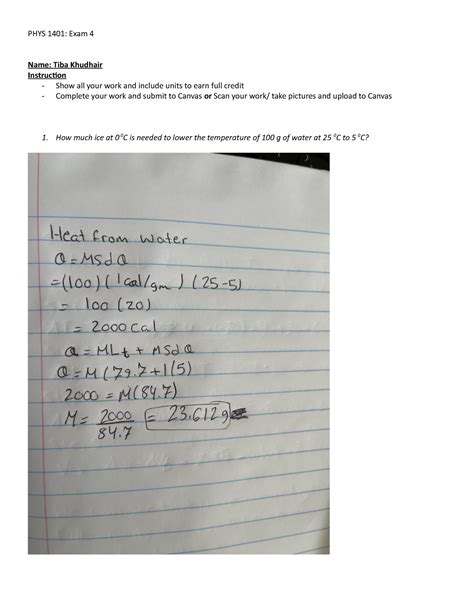 PHYS 1401: Exam 4
Name: Tiba Khudhair
Instruction
- Show all your work and include units to earn full credit
- Complete your work and submit to Canvas or Scan your work/ take pictures and upload to Canvas
1. How much ice at 0⁰C is needed to lower the temperature of 100 g of water at 25 ⁰C to 5 ⁰C?
Heat from water
Q = MSdQ
=(100)(1cal/gm)(25-5)
= 100 (20)
= 2000 Cal
Q = MLt + MSdQ
Q = M(79.7+1(5)
2000 = M(84.7)
M = 2000/84.7 = 23.612g